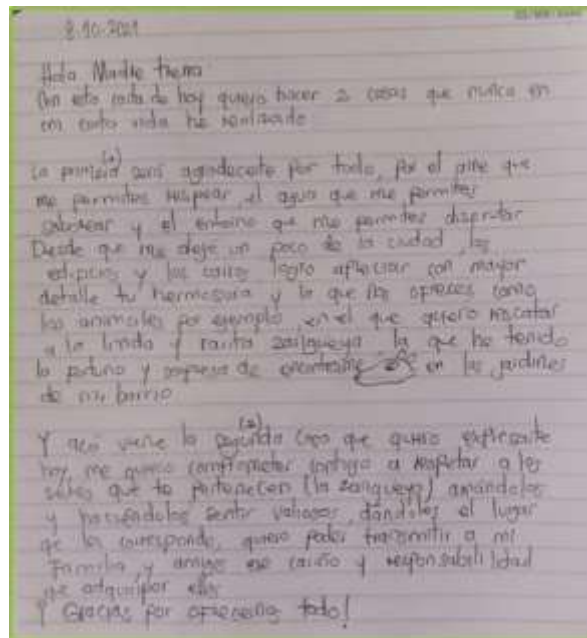 8-10-2021
Hola Madre tierra
Con esta carta de hoy quiero hacer 2 cosas que nunca en
mi corta vida he realizado
La primera (1) será agradecerte por todo, por el aire que
me permites respirar, el agua que me permites
saborear y el entorno que me permites disfrutar
Desde que me aleje un poco de la ciudad, los
edificios y los carros logro apreciar con mayor
detalle tu hermosura y lo que nos ofreces como
los animales por ejemplo, en el que quiero rescatar
a la linda y rarita zarigueya, la que he tenido
la fortuna y sorpresa de encontrarme en los jardines
de mi barrio
Y acá viene la segunda (2) cosa que quiero expresarte
hoy, me quiero comprometer contigo a respetar a los
seres que te pertenecen (la zarigueya) amándolos
y haciéndolos sentir valiosos, dándoles el lugar
que les corresponde, quiero poder transmitir a mi
Familia, y amigos ese cariño y responsabilidad
que adquirí por ellos
Gracias por ofrecerno todo!